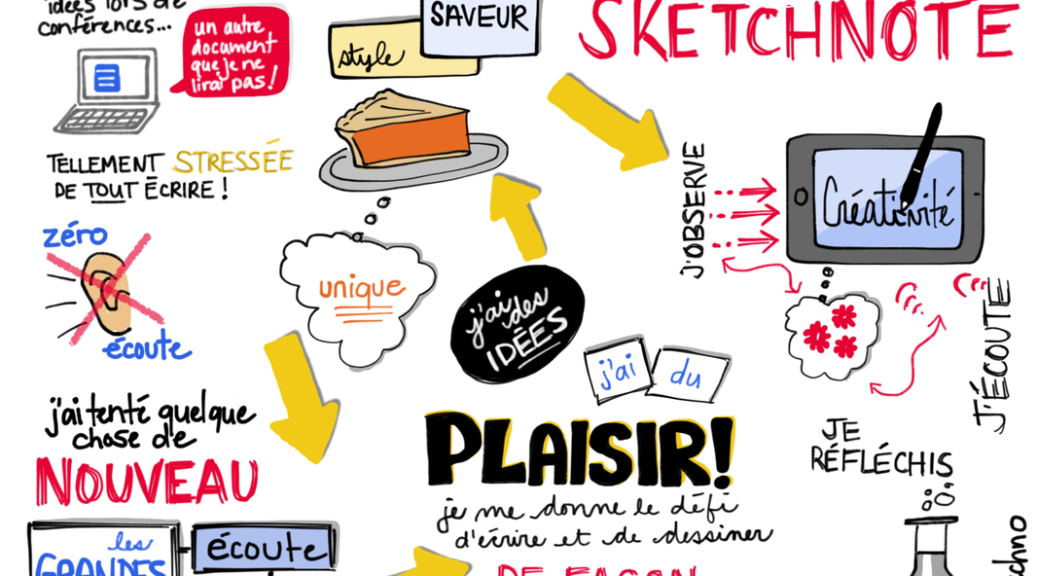 idées lors de
conférences...
un autre
document
que je ne
lirai pas!
TELLEMENT STRESSÉE
DE TOUT ÉCRIRE !
zéro
écoute
j'ai tenté quelque
chose de
NOUVEAU
les
GRANDES
écoute
style
SAVEUR
unique
j'ai des
IDÉES
j'ai du
PLAISIR!
je me donne le défi
d'écrire et de dessiner
DE FAÇON
SKETCHNOTE
J'OBSERVE
Créativité
J'ÉCOUTE
JE
RÉFLÉCHIS